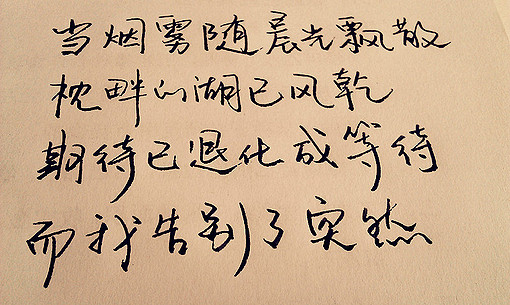 当烟雾随晨光飘散
枕畔的湖已风乾
期待已退化成等待
而我告别了突然